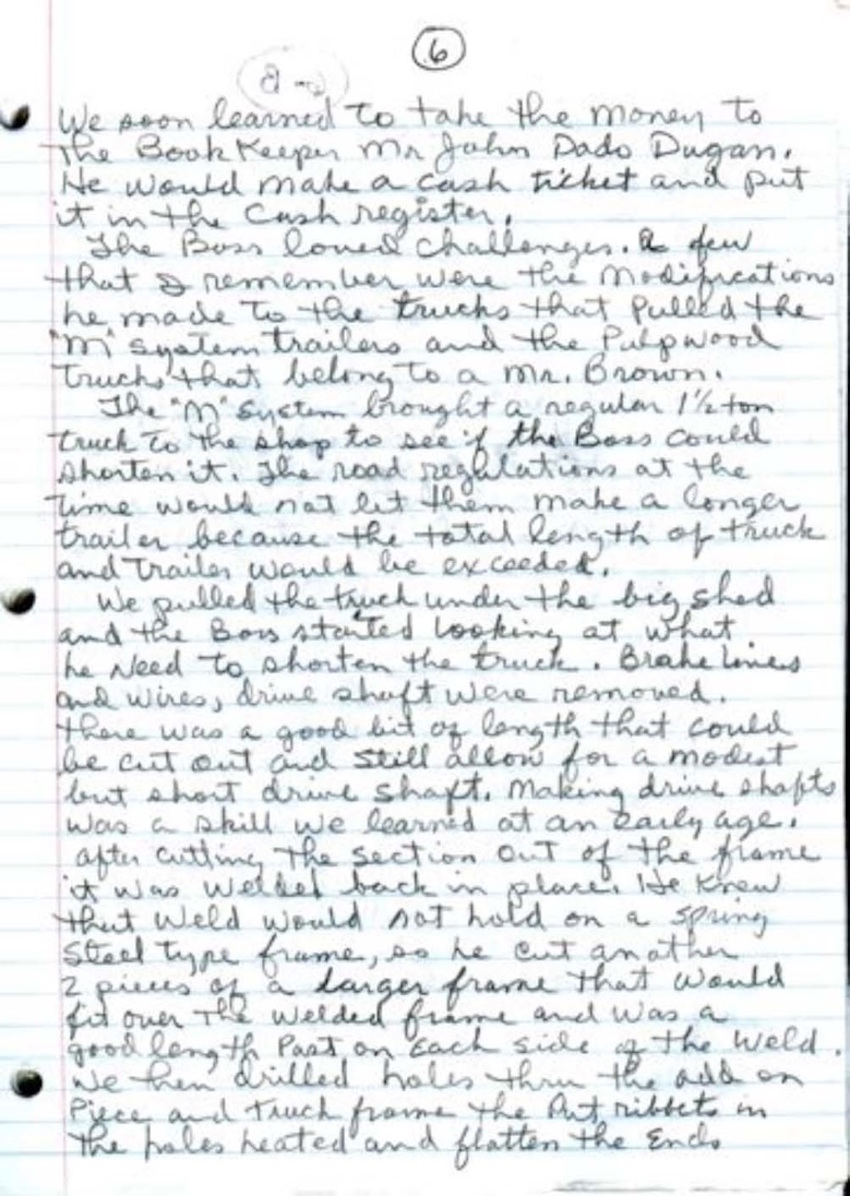 6
We soon learned to take the money to
the BookKeeper Mr John Dado Dugan.
He would make a cash ticket and put
it in the Cash register.
The Boss loved challenges. A few
that I remember were the modifications
he made to the trucks that pulled the
"M" system trailers and the Pulpwood
trucks that belong to a Mr. Brown.
The "M" System brought a regular 1½ ton
truck to the shop to see if the Boss could
shorten it. The road regulations at the
time would not let them make a longer
trailer because the total length of truck
and trailer would be exceeded.
We pulled the truck under the big shed
and the Boss started looking at what
he need to shorten the truck. Brake lines
and wires, drive shaft were removed.
there was a good bit of length that could
be cut out and still allow for a modest
but short drive shaft. Making drive shafts
was a skill we learned at an early age.
after cutting the section out of the frame
it was welded back in place. He knew
that weld would not hold on a spring
steel type frame, so he cut another
2 pieces of a larger frame that would
fit over the welded frame and was a
good length Past on Each side of the weld.
We then drilled holes thru the add on
Piece and truck frame the Put ribbets in
the holes heated and flatten the Ends